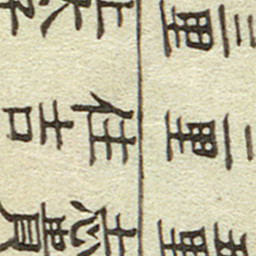 三里
二里
住吉
五里
志貴